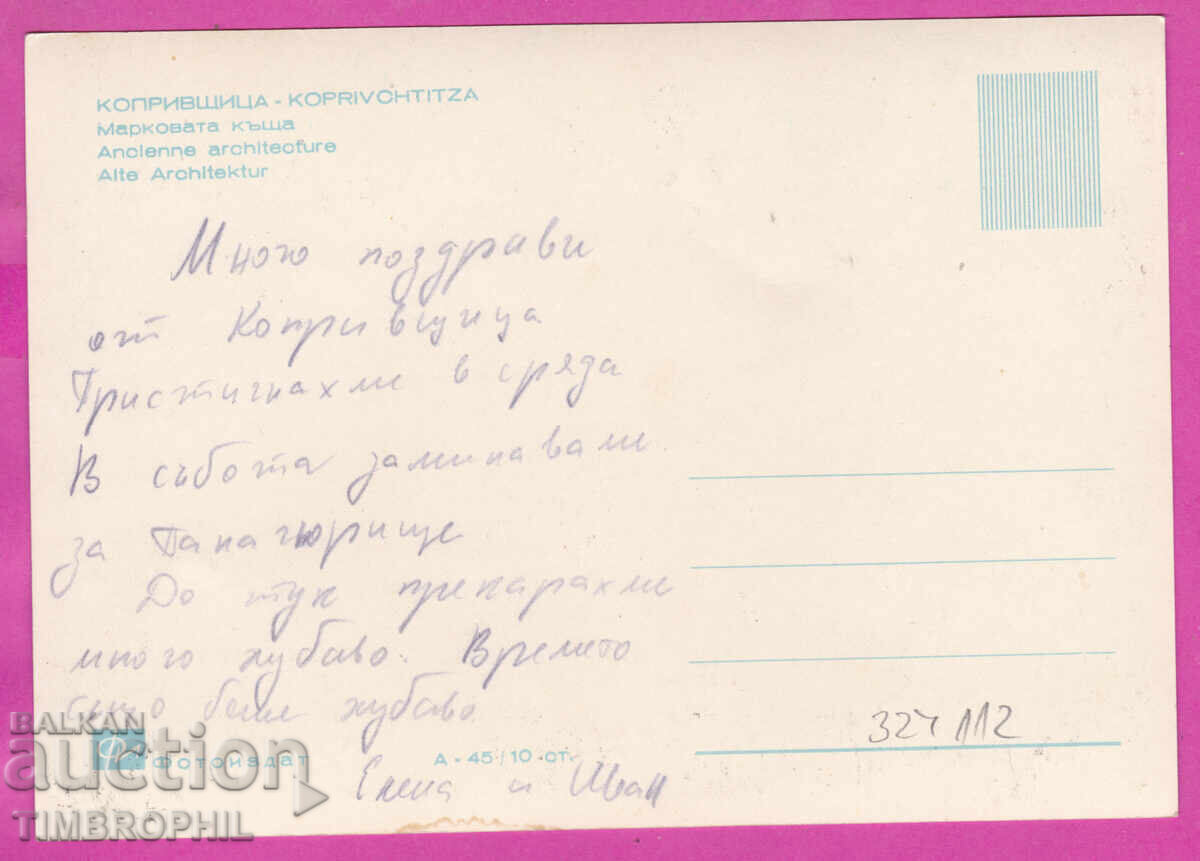 КОПРИВЩИЦА - KOPRIVCHTITZA
Марковата къща
Ancienne architecture
Alte Architektur
Много поздрави
от Копривщица
Пристигнахме в сряда
В събота заминаваме
за Панагюрище
До тук прекарахме
много хубаво. Времето
също беше хубаво
Елена и Иван
Фотоиздат
А - 45 / 10 ст.
324112
BALKAN
auction
TIMBROPHIL